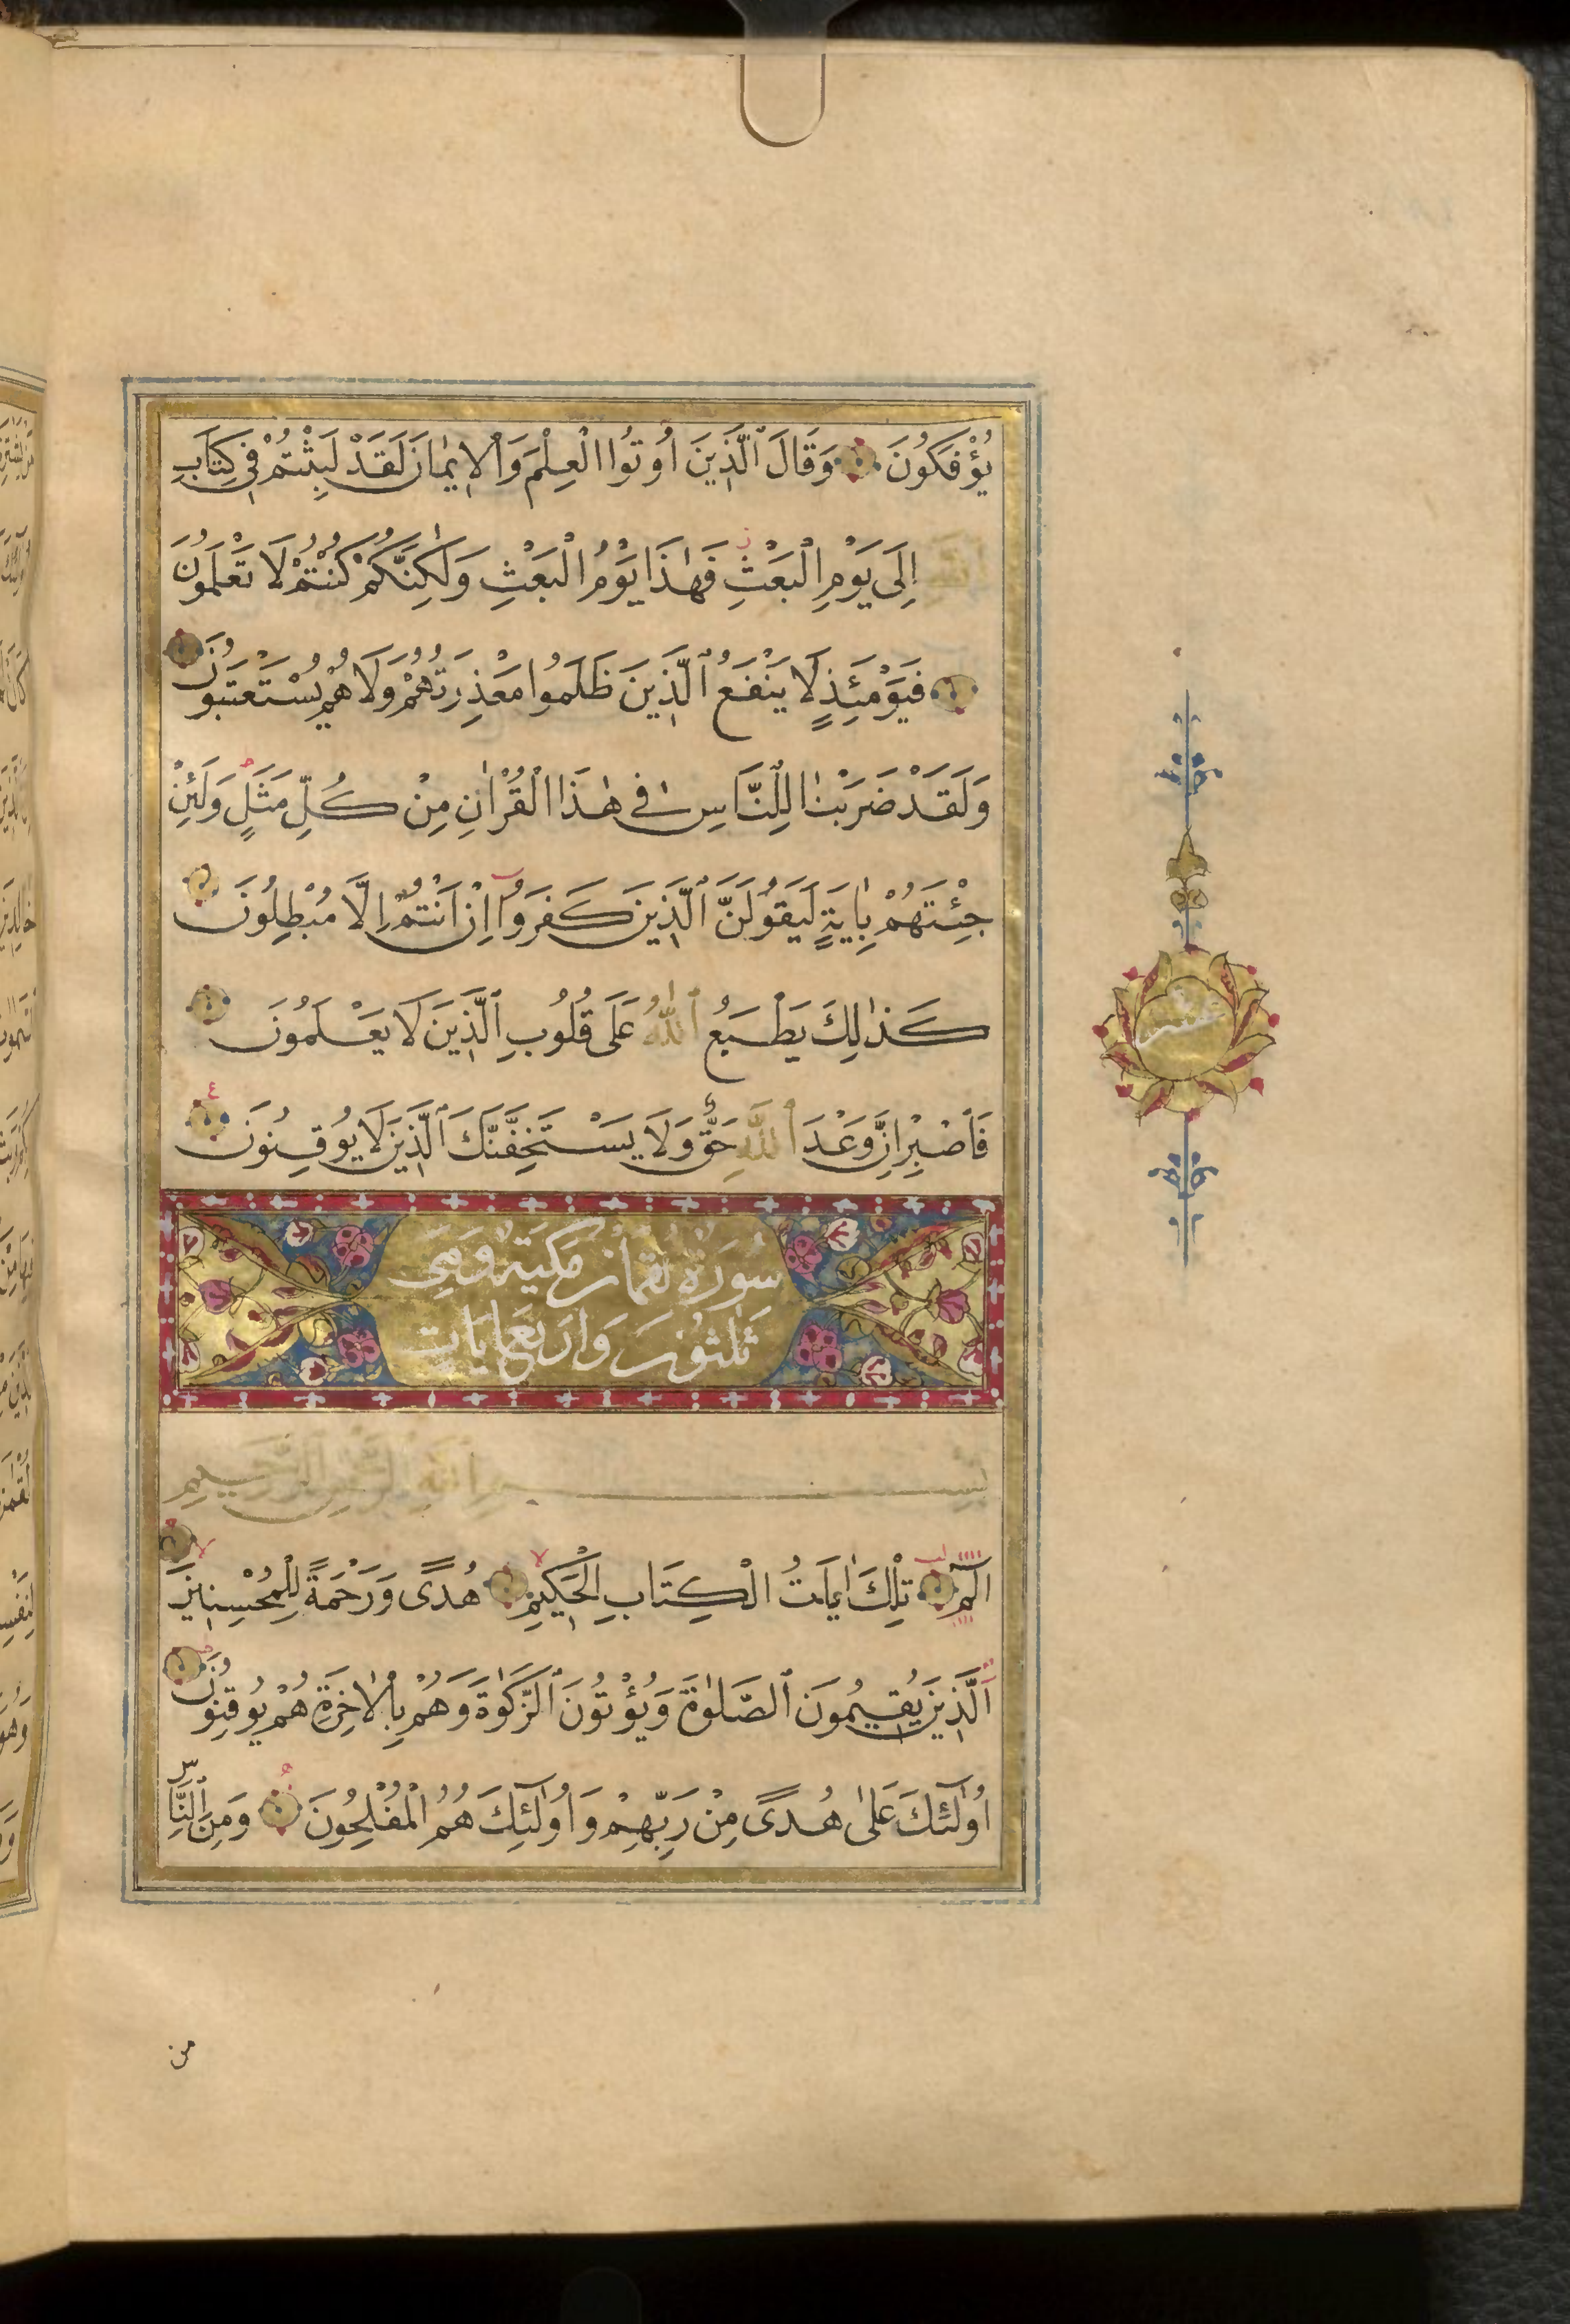 يُؤْفَكُونَ وَقَالَ ٱلَّذِينَ اُوتُوا الْعِلْمَ وَالْاِيمٰانَ لَقَدْ لَبِثْتُمْ فِي كِتَابِ
ٱللّٰهِ اِلَى يَوْمِ الْبَعْثِ فَهٰذَا يَوْمُ الْبَعْثِ وَلٰكِنَّكُمْ كُنْتُمْ لَا تَعْلَمُونَ
فَيَوْمَئِذٍ لَا يَنْفَعُ ٱلَّذِينَ ظَلَمُوا مَعْذِرَتُهُمْ وَلَا هُمْ يُسْتَعْتَبُونَ
وَلَقَدْ ضَرَبْنٰا لِلنَّاسِ فِي هٰذَا الْقُرْاٰنِ مِنْ كُلِّ مَثَلٍ وَلَئِنْ
جِئْتَهُمْ بِاٰيَةٍ لَيَقُولَنَّ ٱلَّذِينَ كَفَرَوُا اِنْ اَنْتُمْ اِلَّا مُبْطِلُونَ
كَذٰلِكَ يَطْبَعُ ٱللّٰهُ عَلَى قُلُوبِ ٱلَّذِينَ لَا يَعْلَمُونَ
فَاصْبِرْ اِنَّ وَعْدَ ٱللّٰهِ حَقٌّ وَلَا يَسْتَخِفَّنَّكَ ٱلَّذِينَ لَا يُوقِنُونَ
سُورَةُ لقمَانَ مَكيَّة وَهِيَ
ثَلٰثُونَ وَاَرْبَعُ اٰيَاتٍ
بِسْمِ ٱللّٰهِ ٱلرَّحْمٰنِ ٱلرَّحِيمِ
الٓمٓ تِلْكَ اٰيَاتُ الْكِتَابِ الْحَكِيمِ هُدًى وَرَحْمَةً لِلْمُحْسِنِينَ
ٱلَّذِينَ يُقِيمُونَ ٱلصَّلٰوةَ وَيُؤْتُونَ ٱلزَّكٰوةَ وَهُمْ بِالْاٰخِرَةِ هُمْ يُوقِنُونَ
اُولٰٓئِكَ عَلٰى هُدًى مِنْ رَبِّهِمْ وَاُولٰٓئِكَ هُمُ الْمُفْلِحُونَ وَمِنَ ٱلنَّاسِ
عشر
من